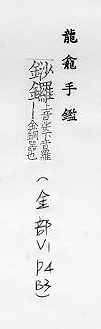 龍龕手鑑
鈔鑼上音沙下音羅
｜｜金銅器也
(金部V1
P4
B3)